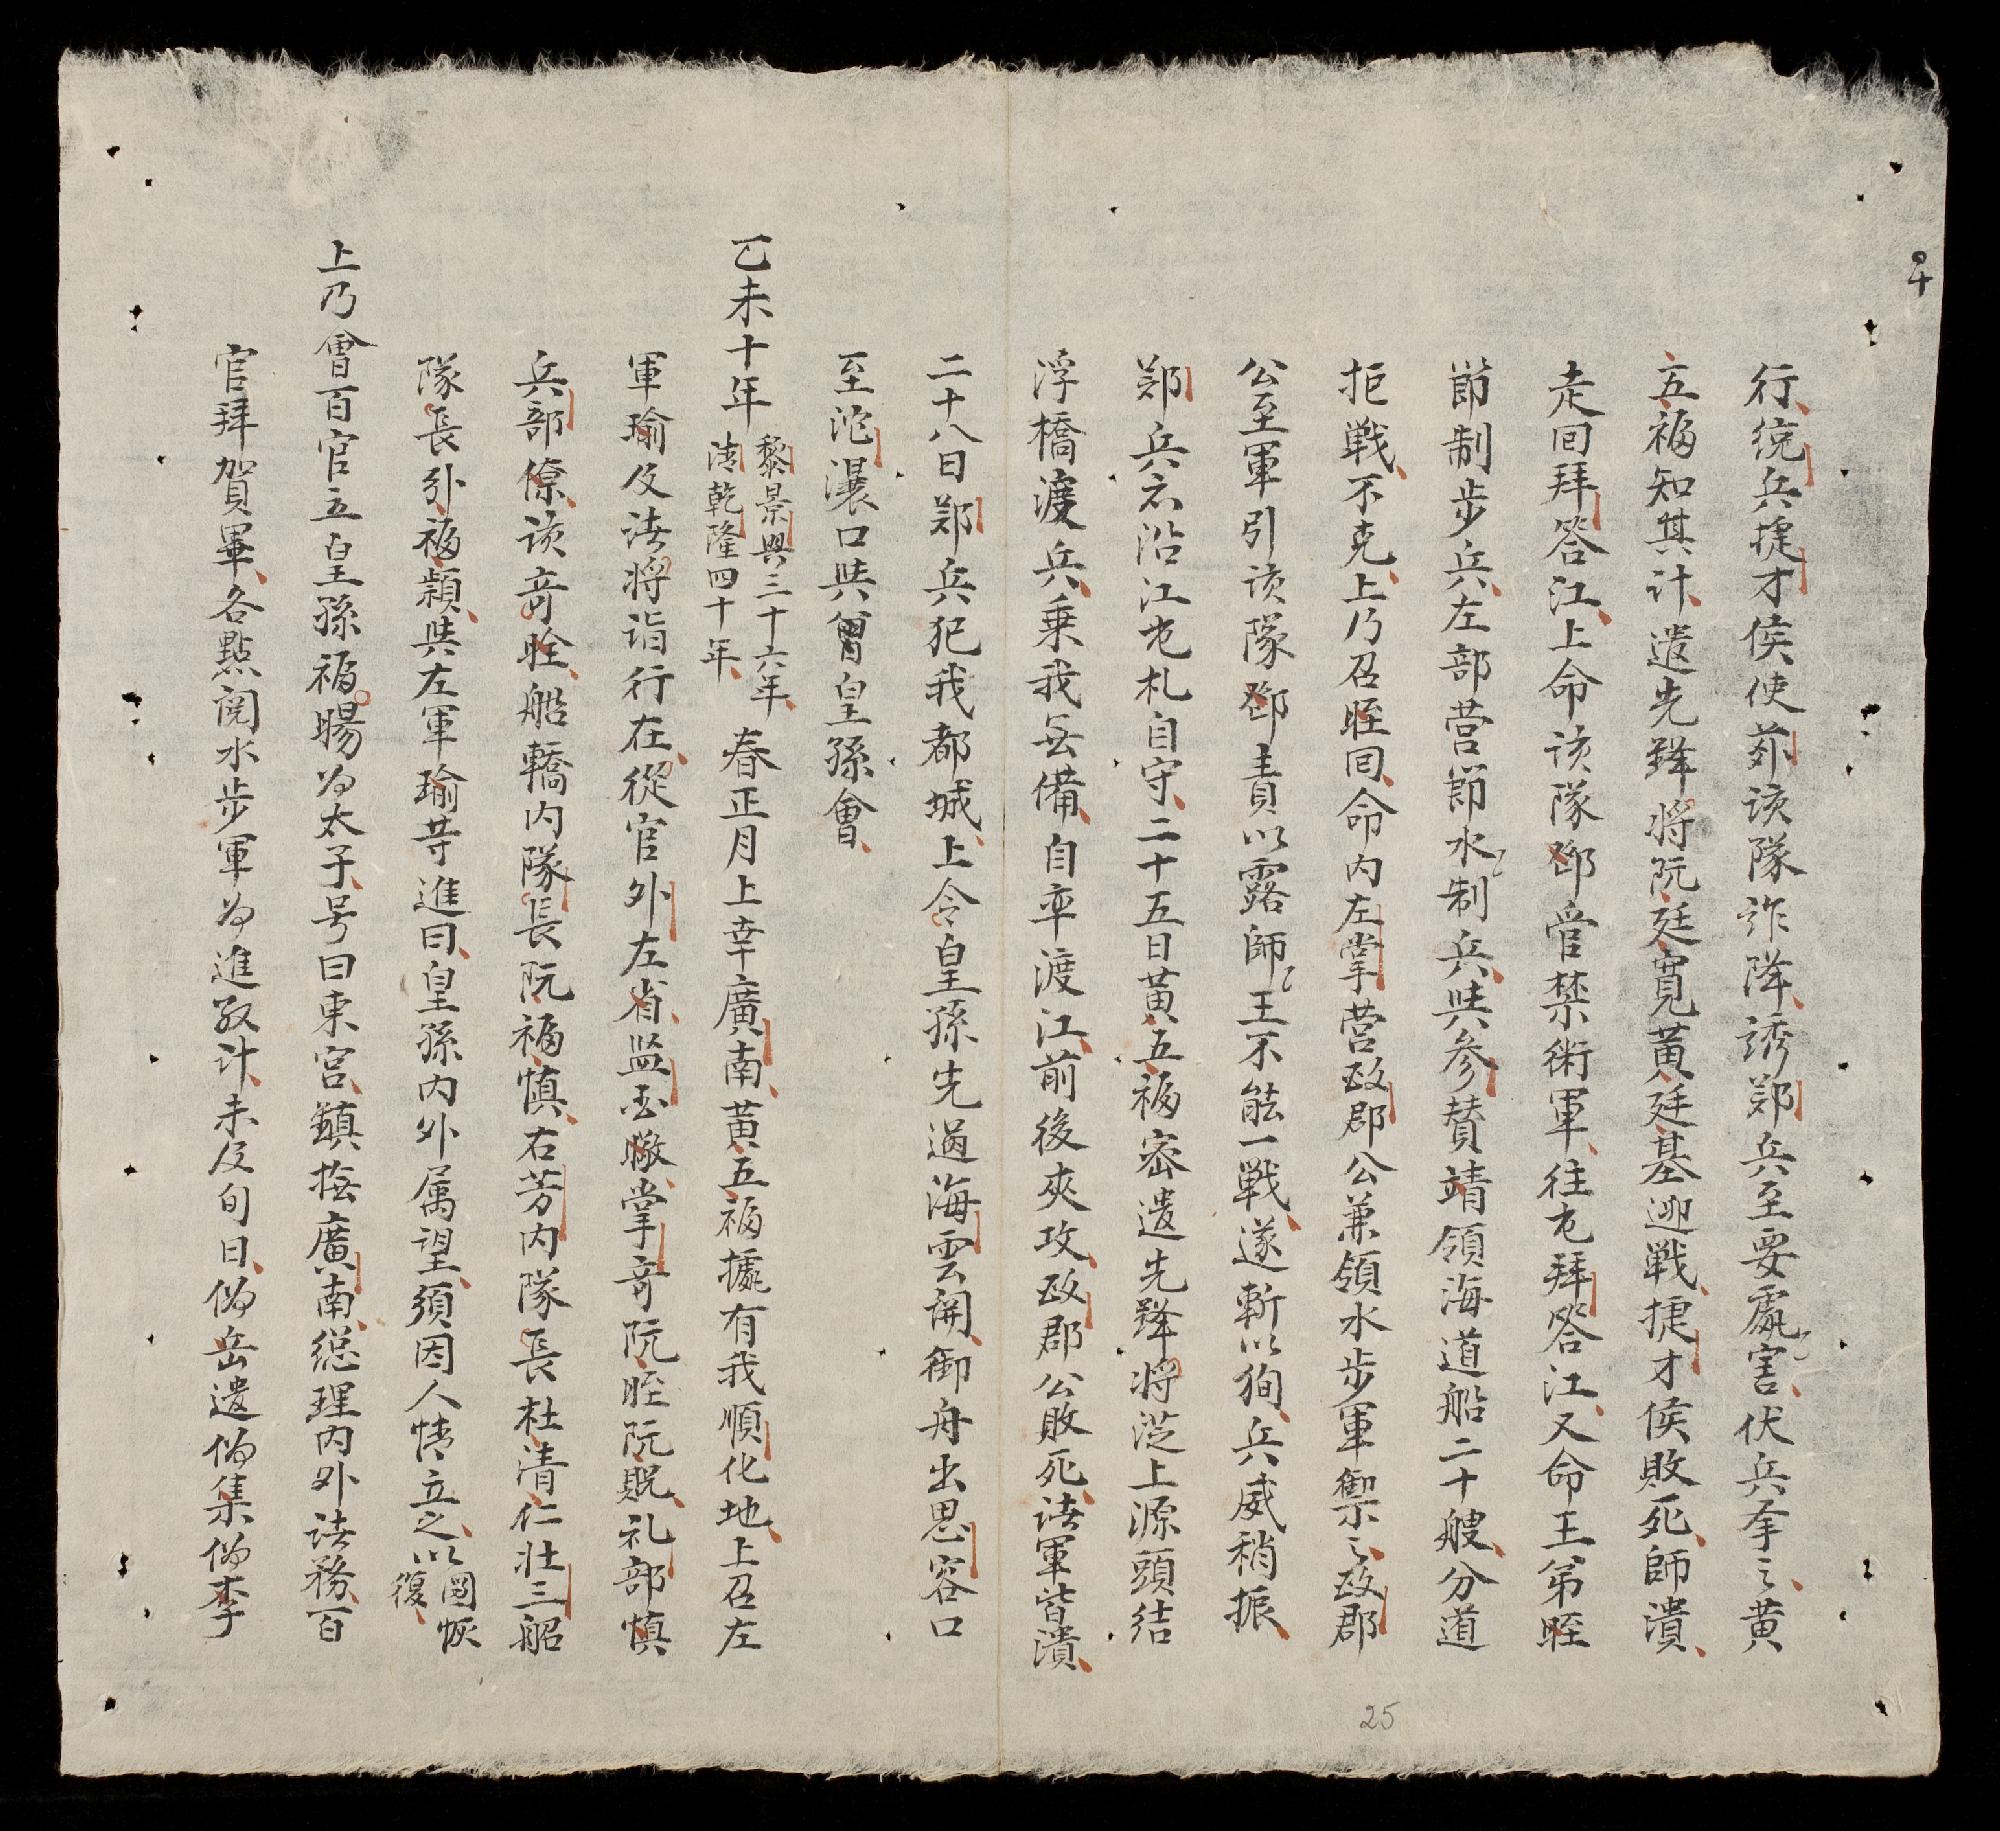 行統兵捷才侯使茆該隊詐降誘鄚兵至要處害伏兵拿之黄
五福知其计遣先鋒将阮廷寬黄廷基迎戦捷才侯敗死師潰
走回拜答江上命该隊𨛦管禁術軍往屯拜答江又命王弟暀
節制步兵左部营節水制兵共参賛靖領海道船二十艘分道
拒戦不克上乃召暀回命内左掌营政郡公兼領水步軍禦之政郡
公至軍引该隊𨛦責以露師王不能一戦遂斬以狥兵威稍振
鄚兵不沿江屯札自守二十五日黄五福密遣先鋒将從上源頭結
浮橋渡兵乗我無備自率渡江前後夾攻政郡公敗死诸軍皆潰
二十八日鄚兵犯我都城上令皇孫先過海雲関御舟出思容口
至沱瀼口共曽皇孫會
乙未十年
黎景興三十六年
清乾隆四十年
春正月上幸廣南黄五福據有我順化地上召左
軍瑜及诸将诣行在從官外左省监丕暾掌竒阮暀阮贶礼部慎
兵部傔该竒晗船轎内隊長阮福慎右芳内隊長杜清仁壮三船
隊長引福穎共左軍瑜等進曰皇孫内外属望須因人情立之以
圖恢
復
上乃會百官立皇孫福暘为太子号曰東宮鎮撫廣南総理内外诸務百
官拜賀畢各點閲水步軍为進取计未及旬日偽岳遣偽集偽李
25